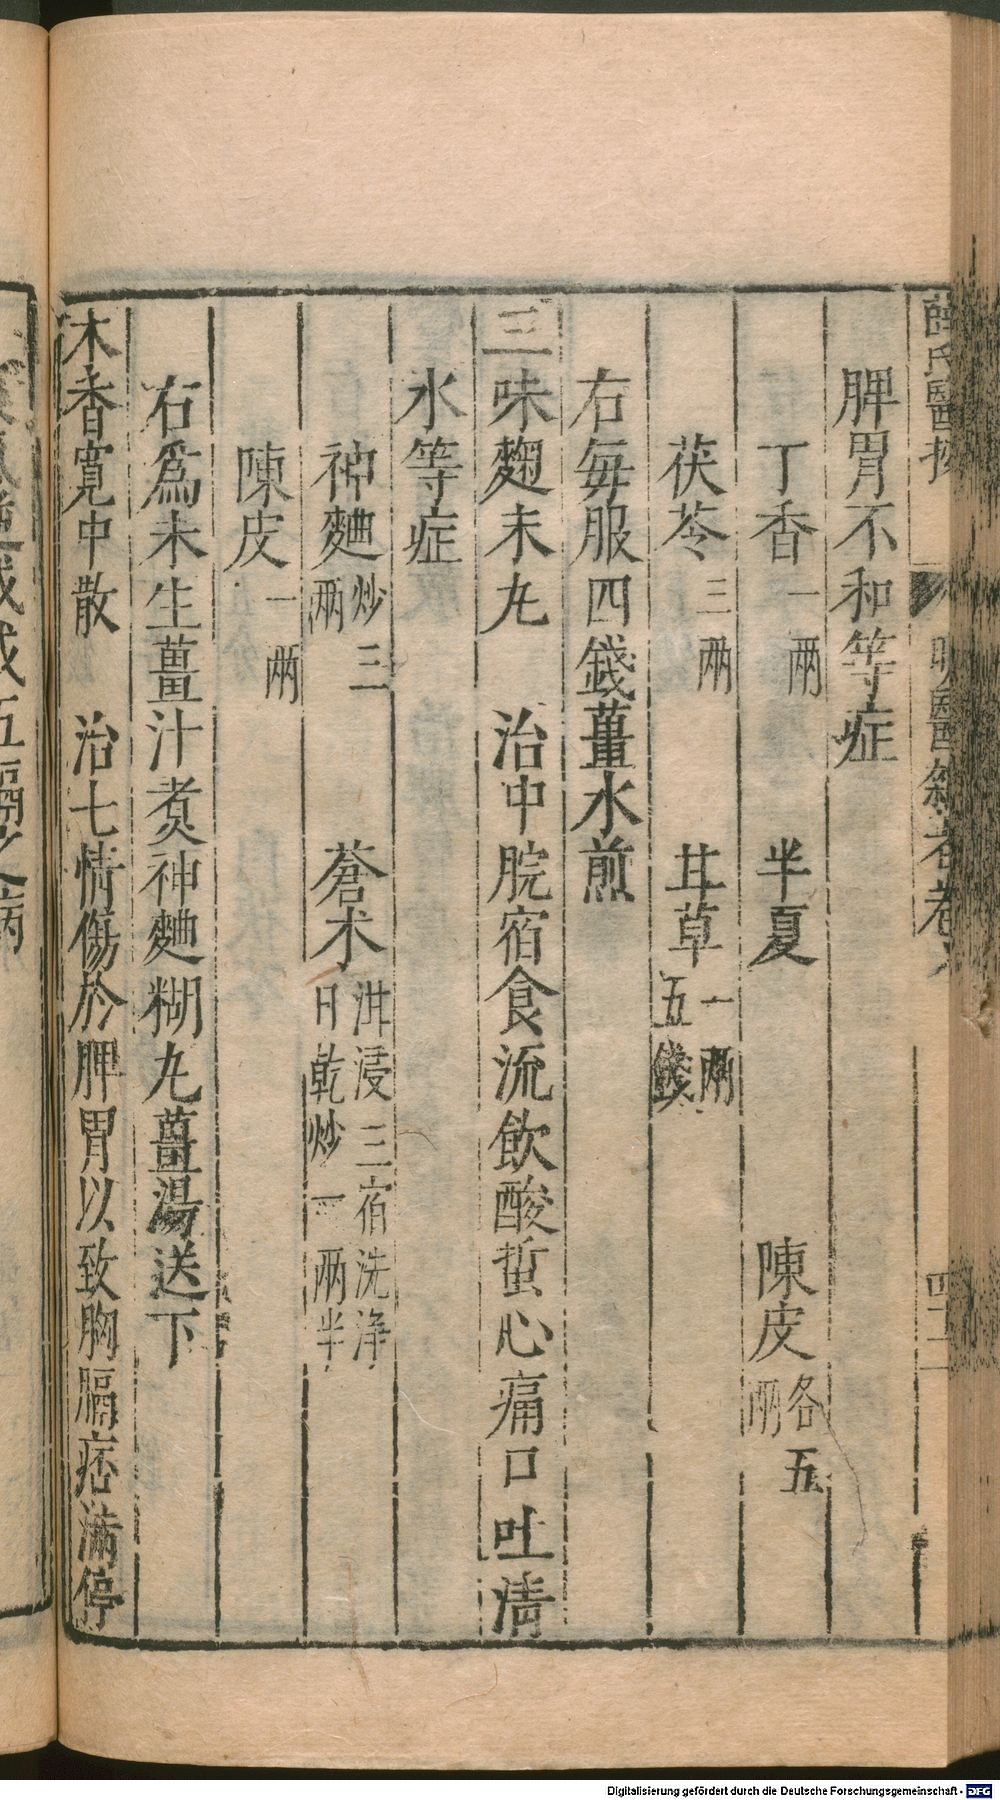 脾胃不和等症
丁香一兩 半夏 陳皮各五兩
茯苓三兩 甘草一兩五錢
右每服四錢薑水煎
三味麴末丸 治中脘宿食流飲酸蜇心痛口吐清
水等症
神麯炒三兩 蒼朮泔浸三宿洗浄日乾炒一兩半
陳皮一兩
右爲末生薑汁煮神麯糊丸薑湯送下
木香寛中散 治七情傷於脾胃以致胸膈痞滿停
Digitalisierung gefördert durch die Deutsche Forschungsgemeinschaft - DFG